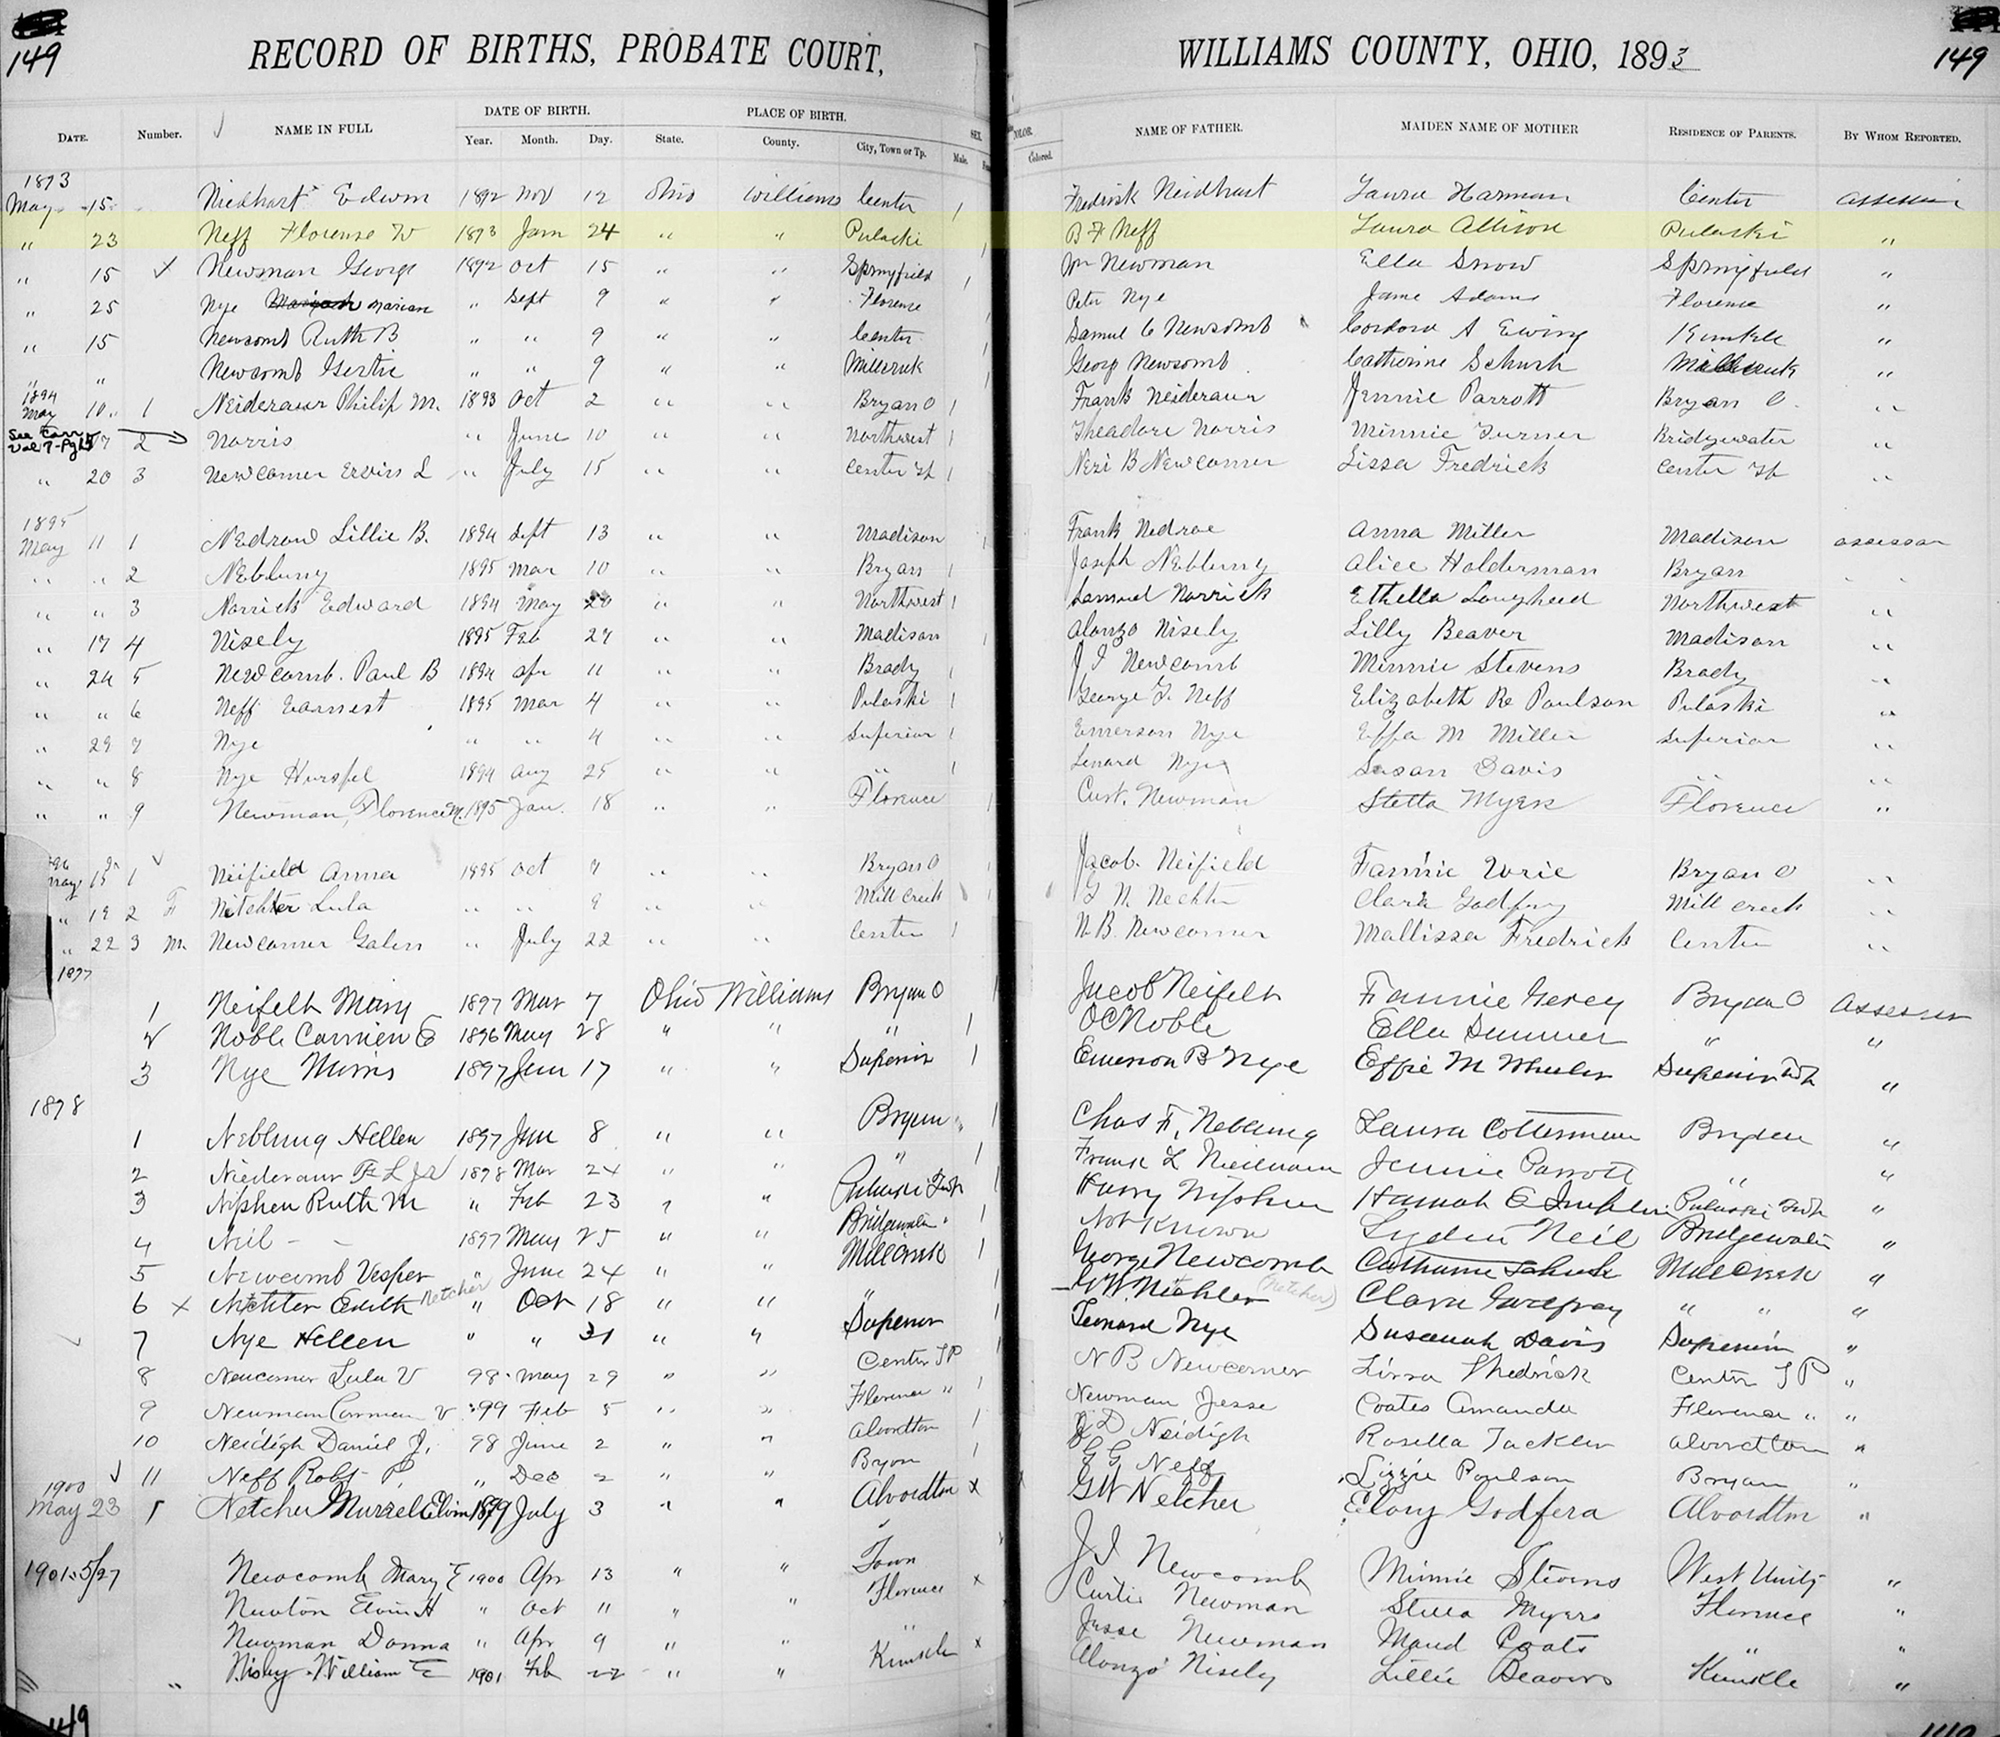 149
RECORD OF BIRTHS, PROBATE COURT,
WILLIAMS COUNTY, OHIO, 1893
149
DATE. Number. NAME IN FULL DATE OF BIRTH. Year. Month. Day. PLACE OF BIRTH. State. County. City, Town or Tp. SEX. Male. COLOR. Colored. NAME OF FATHER. MAIDEN NAME OF MOTHER RESIDENCE OF PARENTS. BY WHOM REPORTED.
1893
May 15 Niedhart Edwin 1892 Nov 12 Ohio Williams Center 1 Fredrick Neidhart Laura Harman Center assessor
" 23 Neff Florense W 1893 Jan 24 " " Pulaski 1 B F Neff Laura Allison Pulaski "
" 15 Newman George 1892 Oct 15 " " Springfield 1 Newman Ella Snow Springfield "
" 25 Nye Marian " Sept 9 " " Florence Peter Nye Jane Adams Florence "
" 15 Newcomb Ruth B " " 9 " " Center Samuel C Newcomb Cordora A Ewing Kunkle "
" " Newcomb Gertie " " 9 " " Millcreek Georg Newcomb Catherine Schurh Millcreek "
1894
May 10 1 Neideraur Philip M. 1893 Oct 2 " " Bryan O 1 Frank Neideraur Jennie Parrott Bryan O. "
See Corr Vol 7-Pg 17 2 Norris " June 10 " " Northwest 1 Theadore Norris Minnie Turner Bridgewater "
" 20 3 Newcomer Ervin L " July 15 " " Center Tp 1 Neri B Newcomer Lissa Fredrick Center Tp "
1895
May 11 1 Nedrow Lillie B. 1894 Sept 13 " " Madison Frank Nedroe Anna Miller Madison assessor
" " 2 Neblung 1895 Mar 10 " " Bryan 1 Joseph Neblung Alice Holderman Bryan
" " 3 Norrick Edward 1894 May 20 " " Northwest 1 Samuel Norrick Ethella Longheed Northwest "
" 17 4 Nisely 1895 Feb 27 " " Madison 1 Alonzo Nisely Lilly Beaver Madison "
" 24 5 Newcomb. Paul B 1894 Apr 11 " " Brady 1 J I Newcomb Minnie Stevens Brady "
" " 6 Neff Earnest 1895 Mar 4 " " Pulaski 1 George G. Neff Elizabeth Re Poulson Pulaski "
" 29 7 Nye " " 4 " " Superior 1 Emerson Nye Effa M Miller Superior "
" " 8 Nye Hurspel 1894 Aug 25 " " " 1 Lenard Nye Susan Davis " "
" " 9 Newman, Florence M. 1895 Jan. 18 " " Florence 1 Curt. Newman Stella Myers Florence "
May 15 1 Neifield Anna 1895 Oct 7 " " Bryan O Jacob. Neifield Fannie Bryan O "
" 19 2 F Netchter Lula " " 9 " " Mill Creek Clara Godfrey Mill Creek "
" 22 3 M. Newcomer Galen " July 22 " " Center 1 N. B. Newcomer Mallissa Fredrick Center "
1897
1 Neifelt Mary 1897 Mar 7 Ohio Williams Bryan O 1 Jacob Neifelt Fannie Gerey Bryan O Assessor
2 Noble Carmien E 1896 May 28 " " " 1 O C Noble Ella Summer " "
3 Nye Morris 1897 Jan 17 " " Superior 1 Emerson B Nye Effie M Wheeler Superior Twp "
1898
1 Neblung Hellen 1897 Jan 8 " " Bryan 1 Chas F. Neblung Laura Cotterman Bryan "
2 Niederaur F L Jr 1898 Mar 24 " " " 1 Frank L Jennie Parrott " "
3 Niphen Ruth M " Feb 23 " " Pulaski Twp 1 Harry Niphen Hannah E Pulaski Twp "
4 Neil - - 1897 May 25 " " Bridgewater 1 Not Known Lydia Neil Bridgewater "
5 Newcomb Vesper " June 24 " " Millcreek 1 George Newcomb Catharine Schuh Millcreek "
6 x Nichter Edith Netcher " Oct 18 " " " 1 W W. Nichler (Netcher) Clara Godfray " " "
7 Nye Hellen " " 31 " " Superior 1 Leonard Nye Susannah Davis Superior "
8 Newcomer Lula V 98 May 29 " " Center TP N B Newcomer Center TP "
9 Newman Carmen V 99 Feb 5 " " Florence " 1 Newman Jesse Coates Amanda Florence " "
10 Neidigh Daniel J. 98 June 2 " " Alvordton 1 J D Neidigh Rosella Tackler Alvordton "
11 Neff Robt P. " Dec 2 " " Bryan 1 G G Neff Lizzie Poulson Bryan "
1900
May 23 1 Netcher Murrel Elvin 1899 July 3 " " Alvordton x G W Netcher Elory Godfera Alvordton "
1901 5/27 Newcomb Mary E 1900 Apr 13 " " Town J I Newcomb Minnie Stevens West Unity "
Newton Elvin H " Oct 11 " " Florence x Curtis Newman Stella Myers Florence "
Newman Donna " Apr 9 " " " Jesse Newman Maud Coats " "
" Nisley William E 1901 Feb 22 " " Kunkle x Alonzo Nisely Lillie Beavers Kunkle "
149
149